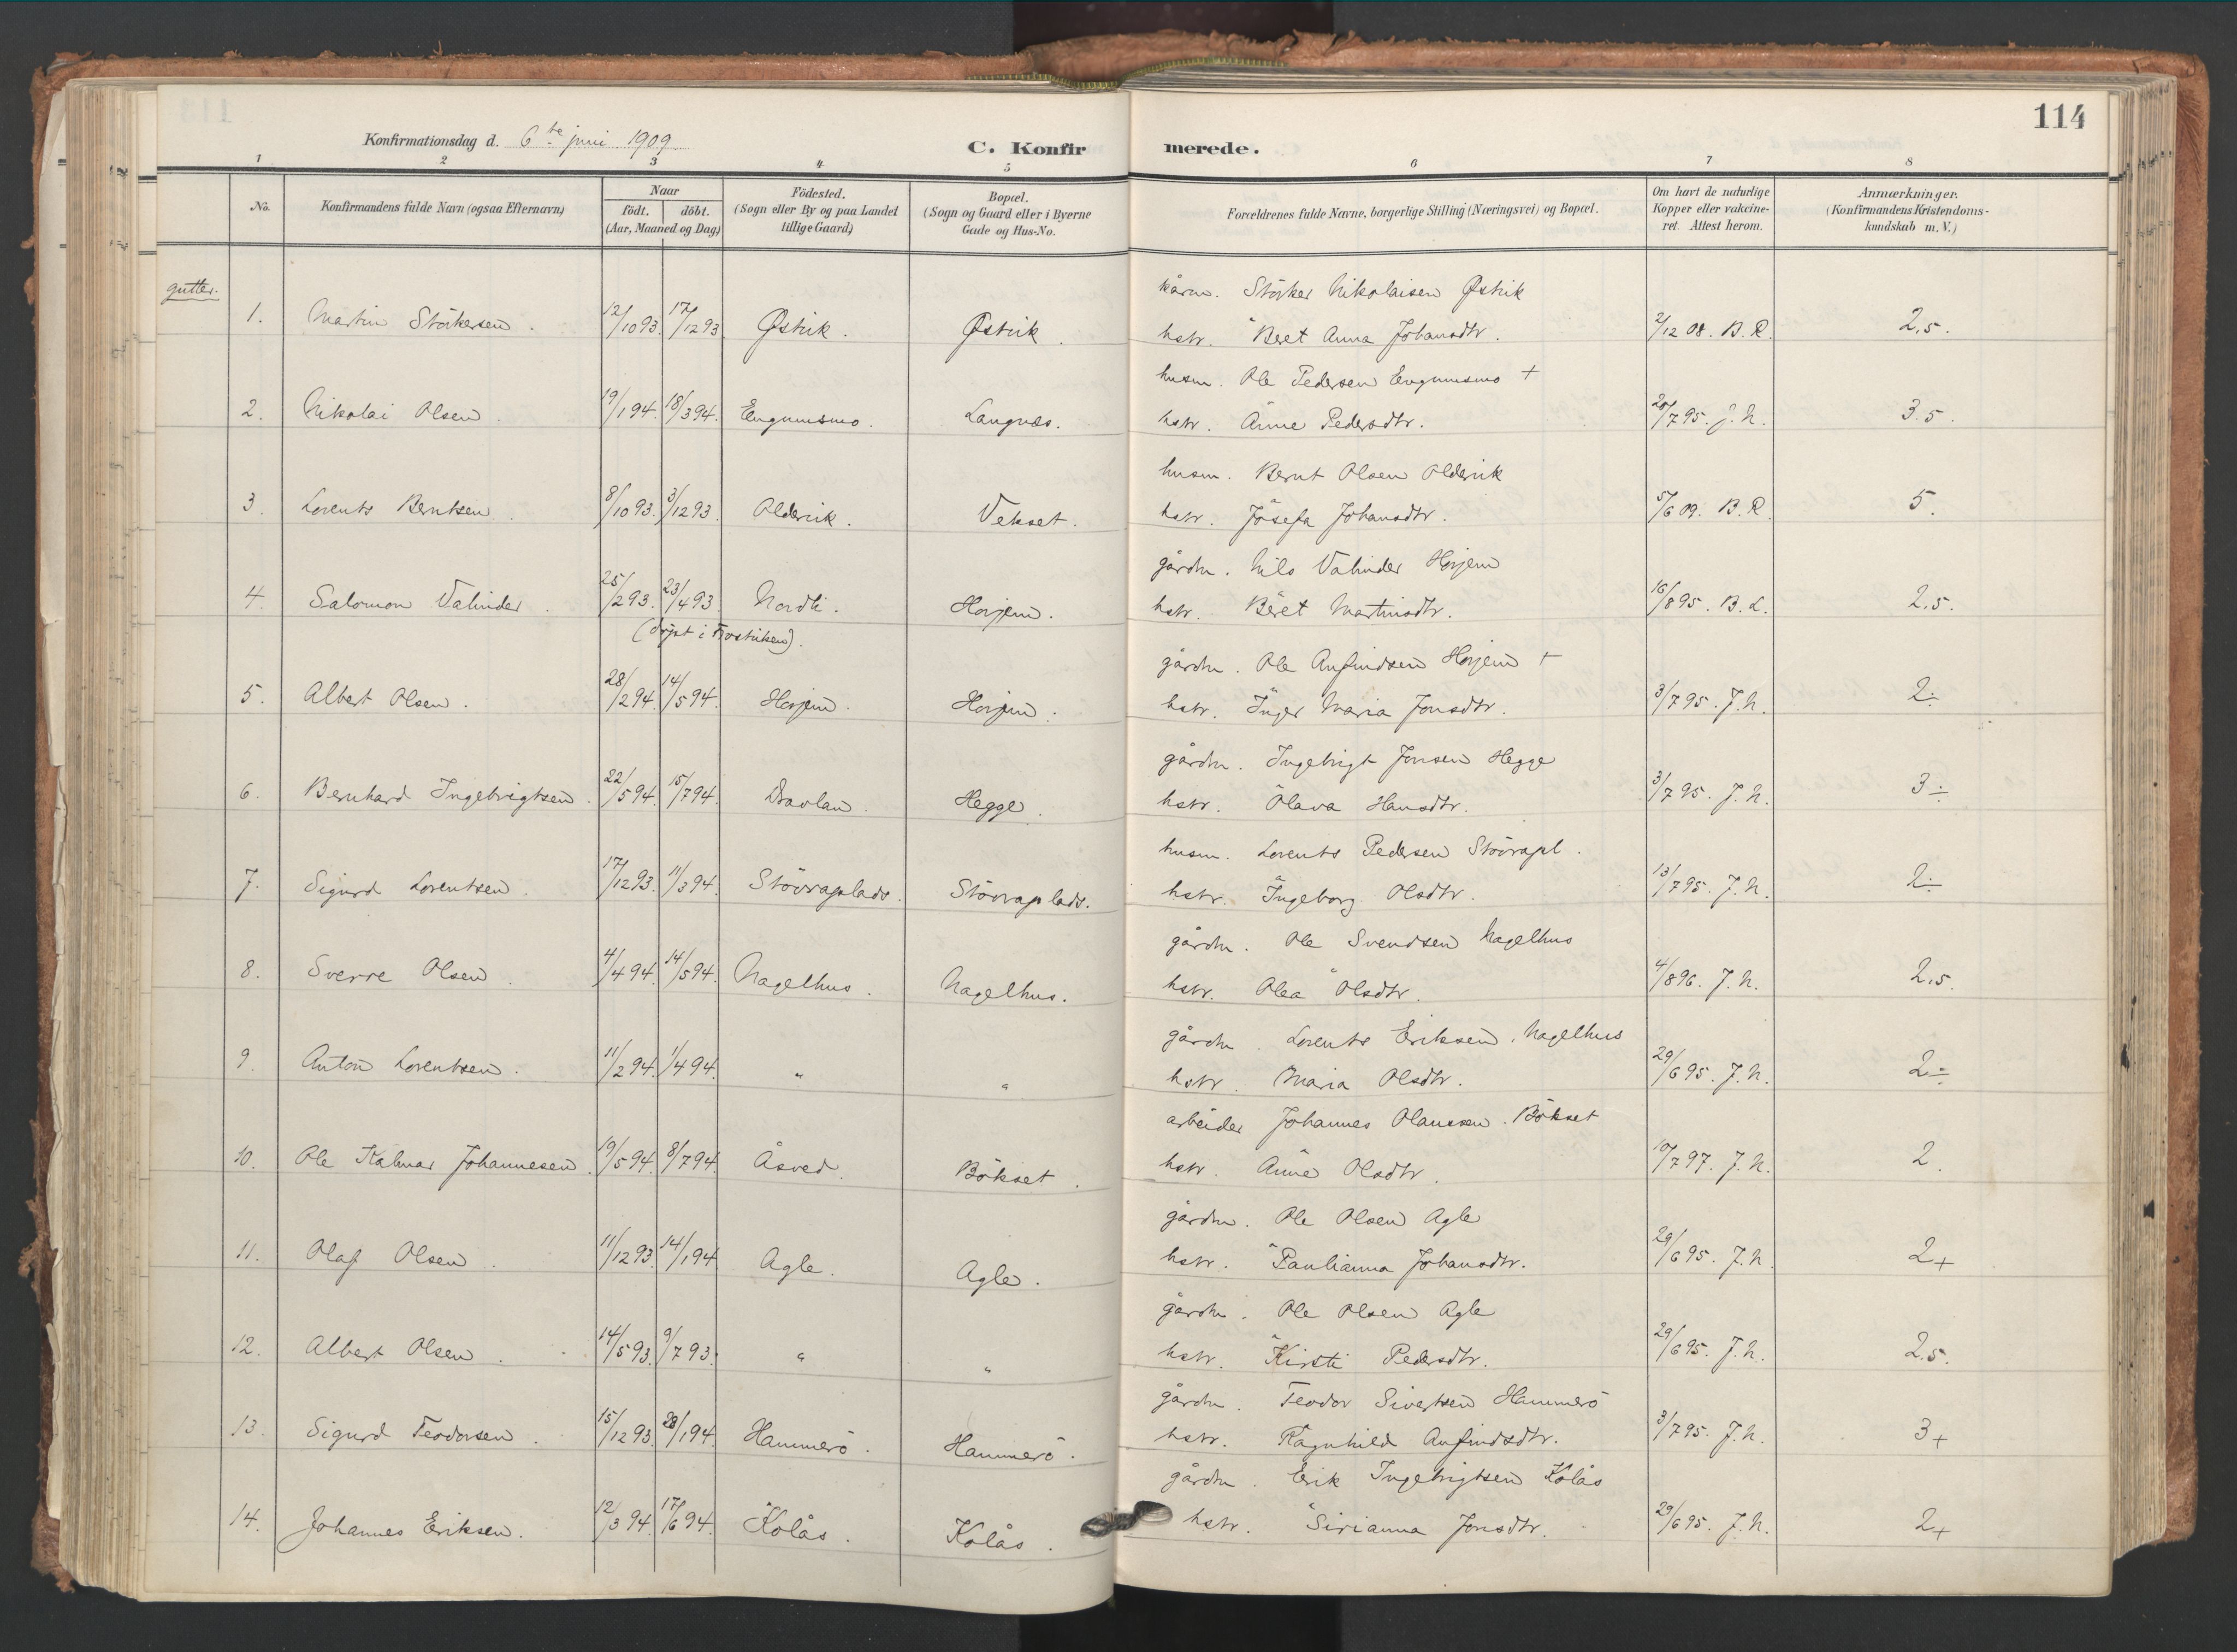 114
Konfirmationsdag d. 6te juni 1909
C. Konfirmerede.
1 2 3 4 5 6 7 8
No.
Konfirmandens fulde Navn (ogsaa Efternavn)
Naar
födt. döbt.
(Aar, Maaned og Dag)
Födested.
(Sogn eller By og paa Landet
tillige Gaard)
Bopæl.
(Sogn og Gaard eller i Byerne
Gade og Hus-No.
Forældrenes fulde Navne, borgerlige Stilling (Næringsvei) og Bopæl.
Om havt de naturlige
Kopper eller vakcine-
ret. Attest herom.
Anmærkninger.
(Konfirmandens Kristendoms-
kundskab m. V.)
gutter.
kårm. Störker Nikolaisen Østvik
1. Martin Störkersen. 12/10 93. 17/12 93 Østvik. Østvik. hstr. Beret Anna Johansdtr. 2/12 08. B. R. 2,5.
husm. Ole Pedersen Engumsmo +
2. Nikolai Olsen. 19/1 94. 18/3 94. Engumsmo. Langnes. hstr. Anne Pedersdtr. 20/7 95. J. N. 3.5.
husm. Bernt Olsen Oldervik
3. Lorents Berntsen. 8/10 93. 3/12 93. Oldervik. Vekset. hstr. Josefa Johansdtr. 5/6 09. B. R. 5.
gårdm. Nils Valinder Hojem
4. Salomon Valinder. 25/2 93. 23/4 93. Nordli. Hojem. hstr. Beret Martinsdtr. 16/8 95. B. L. 2,5.
(döpt i Frostviken).
gårdm. Ole Anfindsen Hojem +
5. Albert Olsen. 28/2 94. 14/5 94. Hojem. Hojem. hstr. Inger Maria Jonsdtr. 3/7 95. J. N. 2÷
gårdm. Ingebrigt Jonsen Hegge
6. Bernhard Ingebrigtsen. 22/5 94. 15/7 94. Dravlan. Hegge. hstr. Olava Hansdtr. 3/7 95. J. N. 3÷
husm. Lorents Pedersen Stövrapl.
7. Sigurd Lorentsen. 17/12 93. 11/3 94. Stövraplads. Stövraplads. hstr. Ingeborg Olsdtr. 13/7 95. J. N. 2÷
gårdm. Ole Svendsen Nagelhus
8. Sverre Olsen. 4/4 94. 14/5 94. Nagelhus. Nagelhus. hstr. Olea Olsdtr. 4/8 96. J. N. 2,5.
gårdm. Lorents Eriksen. Nagelhus
9. Anton Lorentsen. 11/2 94. 1/4 94. " " hstr. Maria Olsdtr. 29/6 95. J. N. 2÷
arbeider Johannes Olaussen. Bökset
10. Ole Kalmar Johannesen. 19/5 94. 8/7 94. Åsved. Bökset. hstr. Anne Olsdtr. 10/7 97. J. N. 2.
gårdm. Ole Olsen Agle
11. Olaf Olsen. 11/12 93. 14/1 94 Agle. Agle. hstr. Paulianna Johansdtr. 29/6 95. J. N. 2+
gårdm. Ole Olsen Agle
12. Albert Olsen. 14/5 93. 9/7 93. " " hstr. Kirsti Pedersdtr. 29/6 95. J. N. 2.5.
gårdm. Teodor Sivertsen Hammerö
13. Sigurd Teodorsen. 15/12 93. 28/1 94. Hammerö. Hammerö. hstr. Ragnhild Anfindsdtr. 3/7 95. J. N. 3+
gårdm. Erik Ingebrigtsen Kolås
14. Johannes Eriksen. 12/3 94. 17/6 94. Kolås. Kolås. hstr. Sirianna Jonsdtr. 29/6 95. J. N. 2+